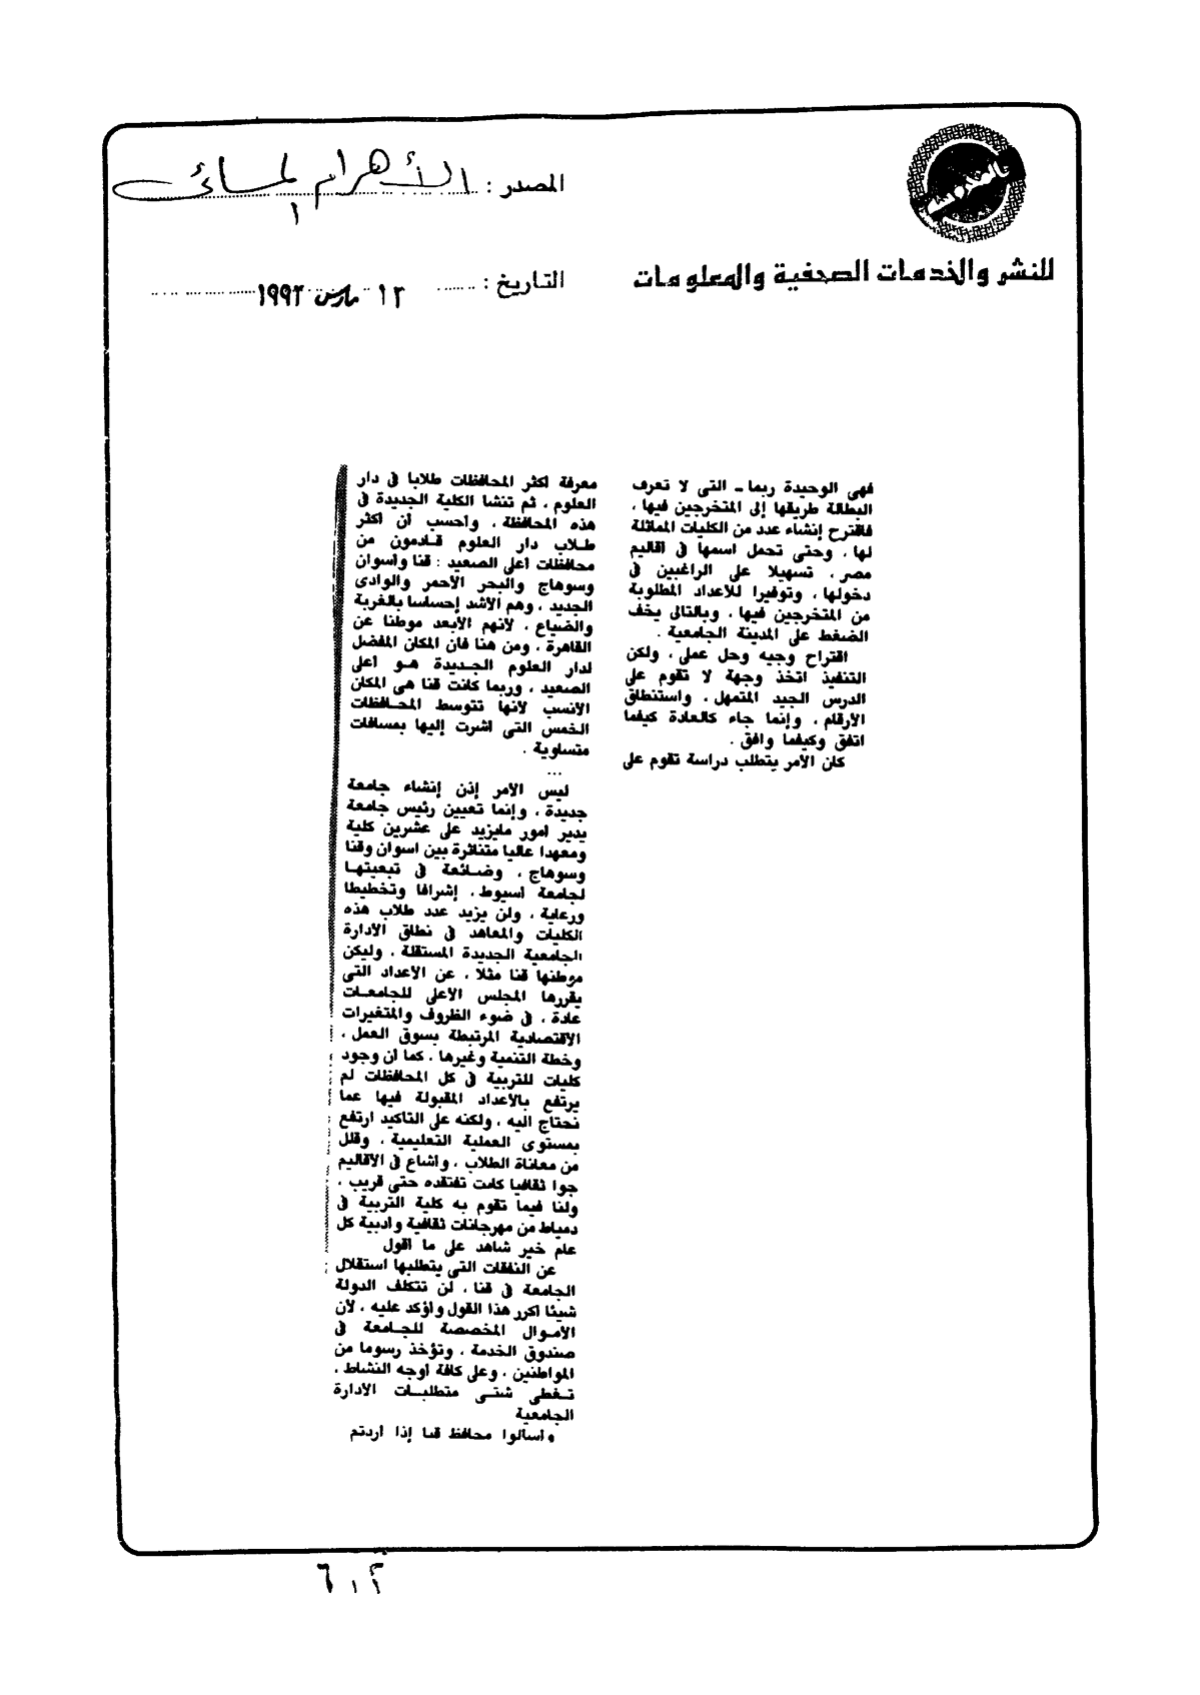 المصدر : الأهرام المسائى
للنشر والخدمات الصحفية والمعلومات
التاريخ : ١٢ مارس ١٩٩٢
فهى الوحيدة ربما ـ التى لا تعرف
البطالة طريقها إلى المتخرجين فيها ،
فاقترح إنشاء عدد من الكليات المماثلة
لها ، وحتى تحمل اسمها فى اقاليم
مصر ، تسهيلا على الراغبين فى
دخولها ، وتوفيرا للأعداد المطلوبة
من المتخرجين فيها ، وبالتالى يخف
الضغط على المدينة الجامعية .
اقتراح وجيه وحل عملى ، ولكن
التنفيذ اتخذ وجهة لا تقوم على
الدرس الجيد المتمهل ، واستنطاق
الأرقام ، وإنما جاء كالعادة كيفما
اتفق وكيفما وافق .
كان الأمر يتطلب دراسة تقوم على
معرفة اكثر المحافظات طلابا فى دار
العلوم ، ثم تنشا الكلية الجديدة فى
هذه المحافظة ، واحسب ان اكثر
طلاب دار العلوم قادمون من
محافظات اعلى الصعيد : قنا واسوان
وسوهاج والبحر الأحمر والوادى
الجديد ، وهم الأشد إحساسا بالغربة
والضياع ، لأنهم الأبعد موطنا عن
القاهرة ، ومن هنا فان المكان المفضل
لدار العلوم الجديدة هو اعلى
الصعيد ، وربما كانت قنا هى المكان
الأنسب لأنها تتوسط المحافظات
الخمس التى اشرت إليها بمسافات
متساوية .
...
ليس الأمر إذن إنشاء جامعة
جديدة ، وإنما تعيين رئيس جامعة
يدير امور مايزيد على عشرين كلية
ومعهدا عاليا متناثرة بين اسوان وقنا
وسوهاج ، وضائعة فى تبعيتها
لجامعة اسيوط ، إشرافا وتخطيطا
ورعاية ، ولن يزيد عدد طلاب هذه
الكليات والمعاهد فى نطاق الادارة
الجامعية الجديدة المستقلة ، وليكن
موطنها قنا مثلا ، عن الأعداد التى
يقررها المجلس الأعلى للجامعات
عادة ، فى ضوء الظروف والمتغيرات
الاقتصادية المرتبطة بسوق العمل ،
وخطة التنمية وغيرها ، كما ان وجود
كليات للتربية فى كل المحافظات لم
يرتفع بالأعداد المقبولة فيها عما
نحتاج اليه ، ولكنه على التاكيد ارتفع
بمستوى العملية التعليمية ، وقلل
من معاناة الطلاب ، واشاع فى الأقاليم
جوا ثقافيا كانت تفتقده حتى قريب ،
ولنا فيما تقوم به كلية التربية فى
دمياط من مهرجانات ثقافية وادبية كل
عام خير شاهد على ما اقول
عن النفقات التى يتطلبها استقلال
الجامعة فى قنا ، لن تتكلف الدولة
شيئا اكرر هذا القول واؤكد عليه ، لأن
الأموال المخصصة للجامعة فى
صندوق الخدمة ، وتؤخذ رسوما من
المواطنين ، وعلى كافة اوجه النشاط ،
تغطى شتى متطلبات الادارة
الجامعية
واسألوا محافظ قنا إذا اردتم